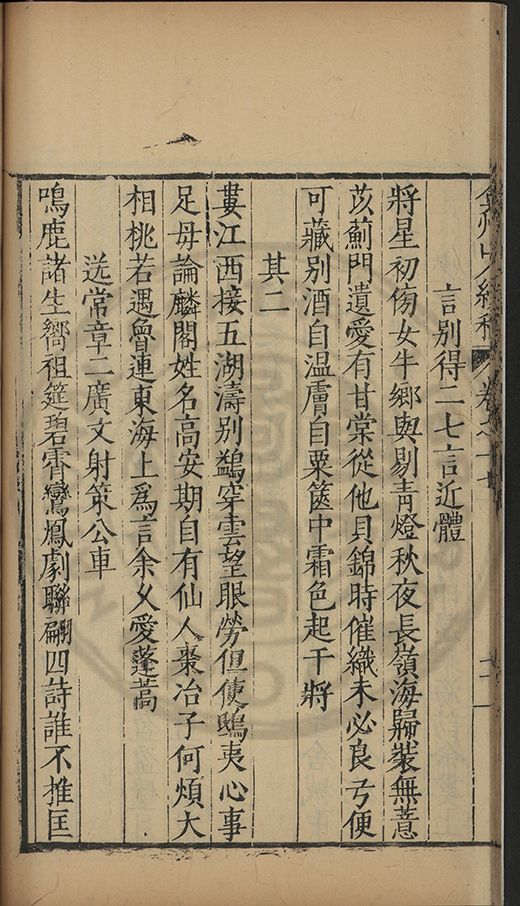 弇州山人續稿 卷之十七
言別得二七言近體
將星初傍女牛鄉與剔青燈秋夜長嶺海歸裝無薏
苡薊門遺愛有甘棠從他貝錦時催織未必良弓便
可藏別酒自温膚自粟篋中霜色起干將
其二
婁江西接五湖濤別鷁穿雲望眼勞但使鴟夷心事
足毋論麟閣姓名高安期自有仙人棗冶子何煩大
相桃若遇魯連東海上爲言余乆愛蓬蒿
送常章二廣文射策公車
鳴鹿諸生嚮祖筵碧霄鸞鳳劇聯翩四詩誰不推匡